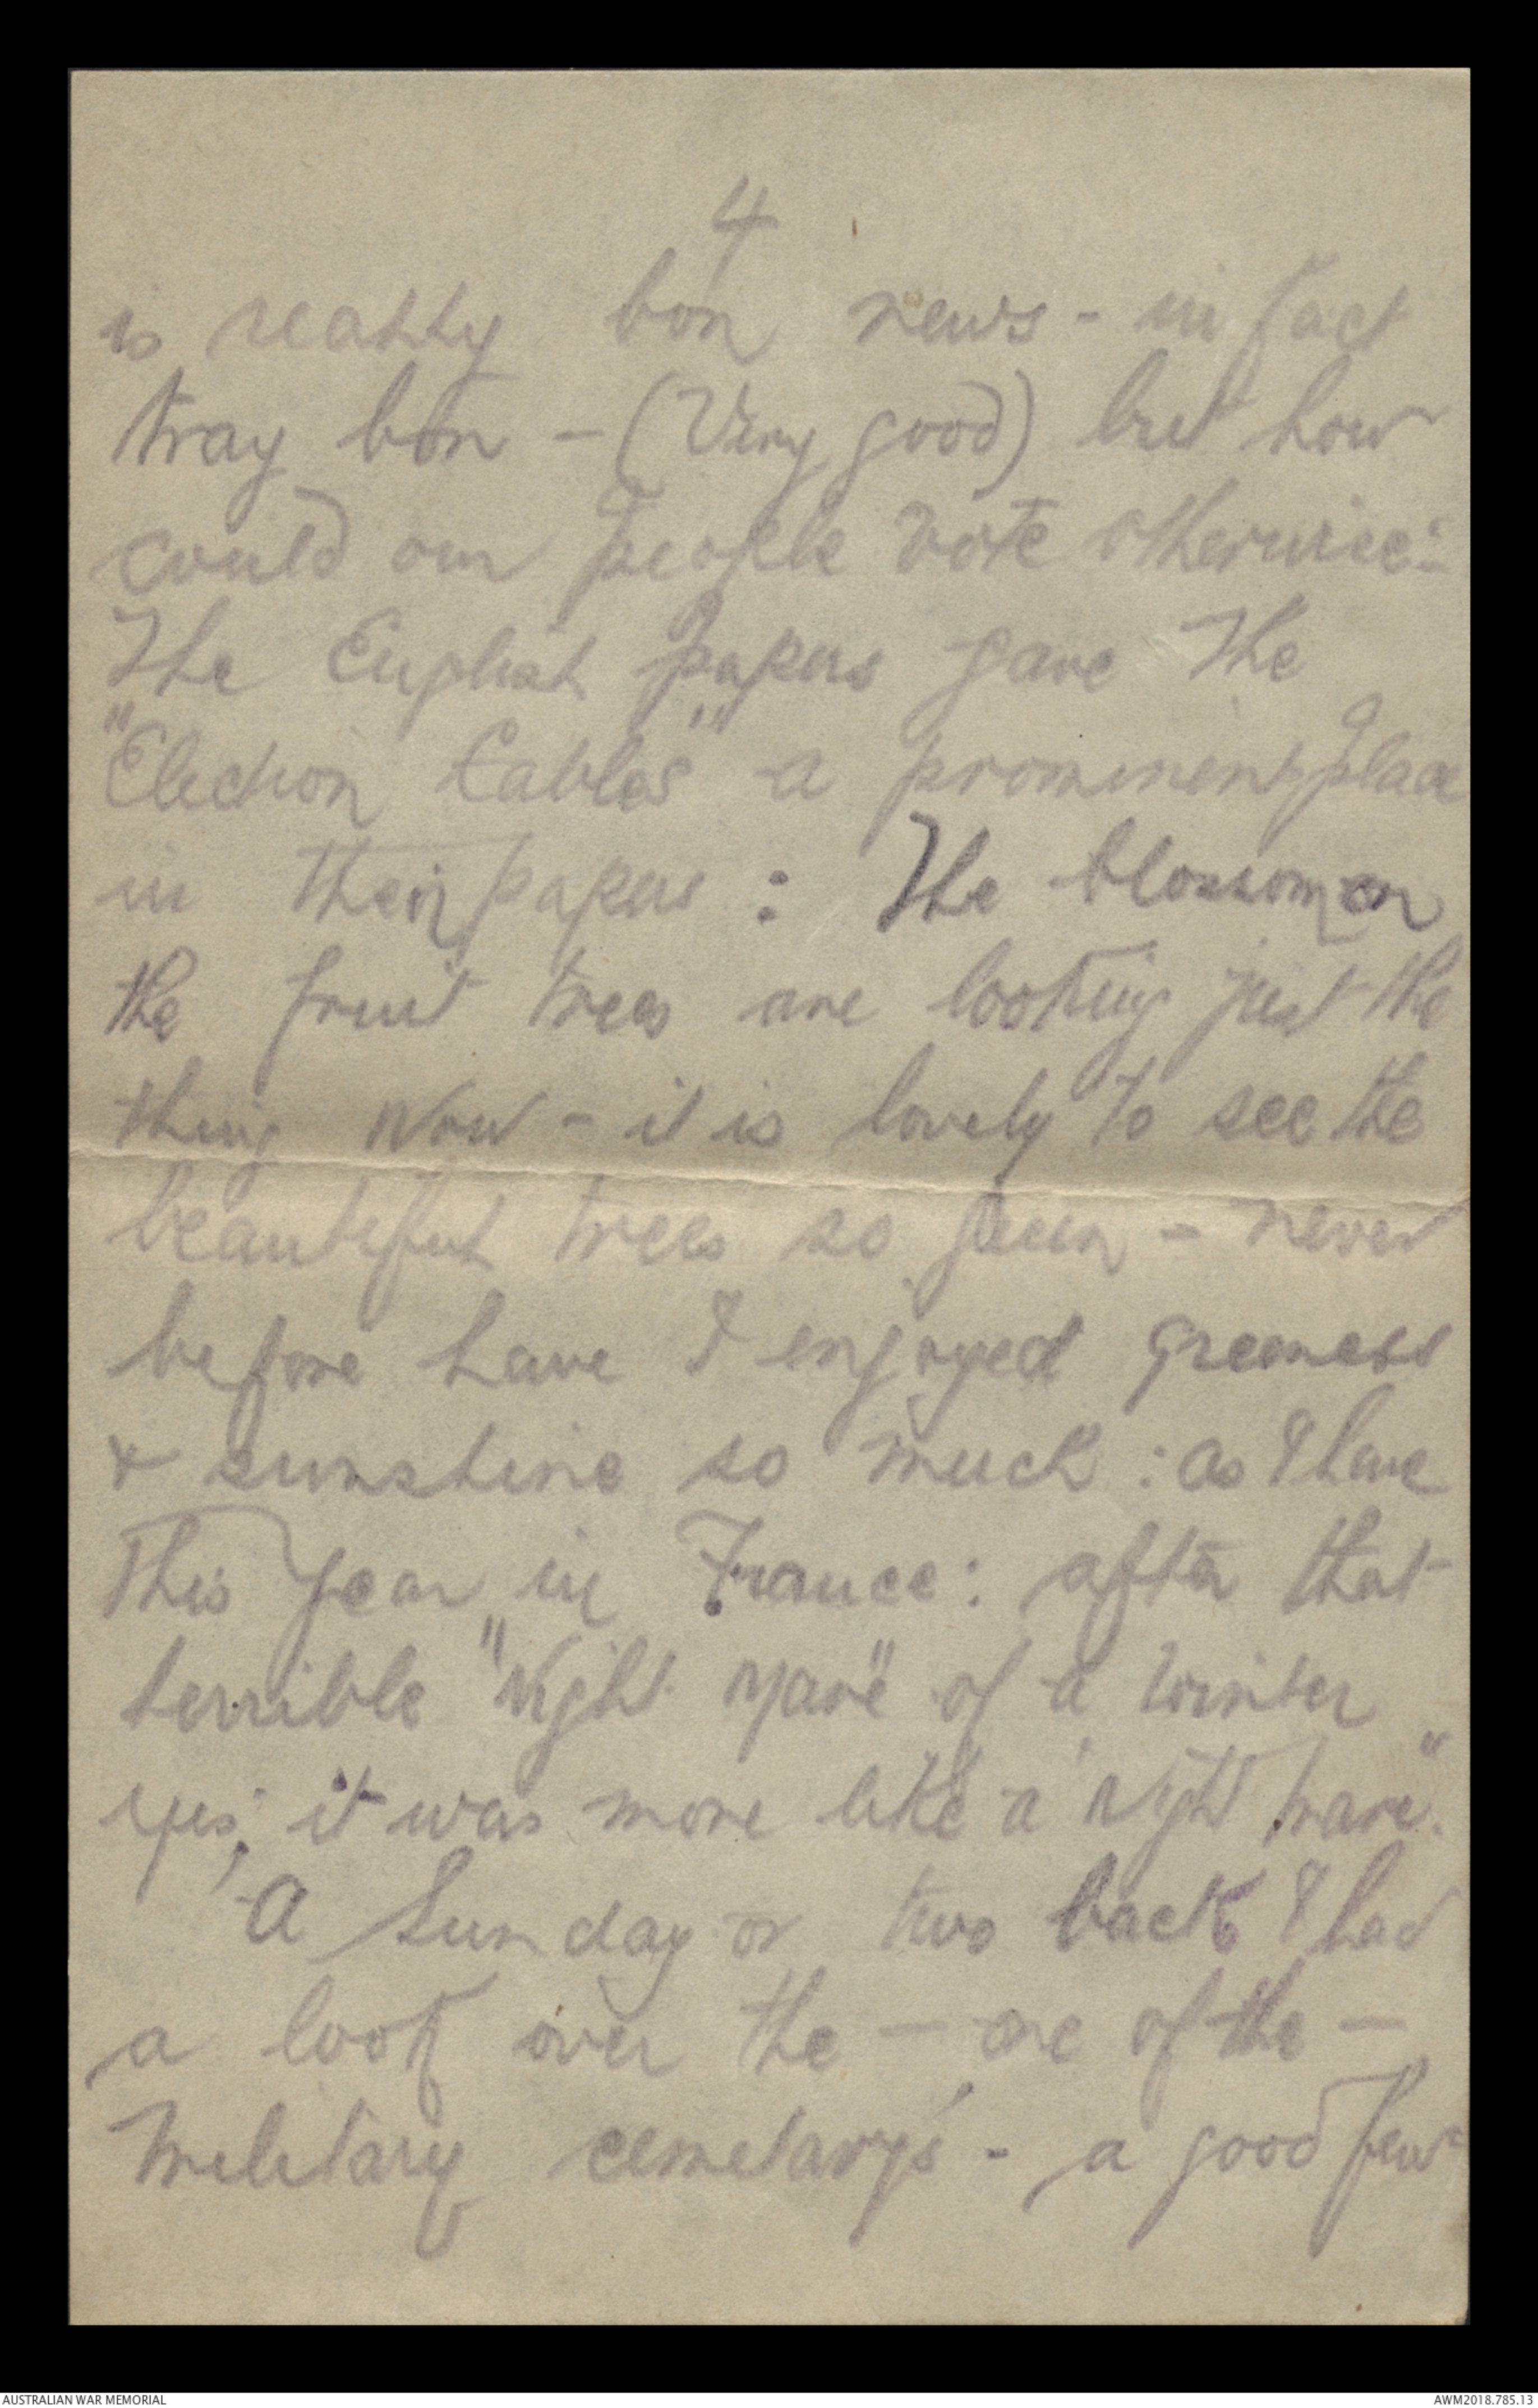 4
is really bon news - in fact
tray bon - (Very good) but how
could our people vote otherwise:-
The English papers gave the
"Election Cables" a prominent place
in their papers : The blossom on
the fruit trees are looking just the
thing now - it is lovely to see the
beautiful trees so green - never
before have I enjoyed greeness
& sunshine so much : as I have
this year in France : after that
terrible "Night mare" of a winter
yes, it was more like a "Night mare".
A Sunday or two back I had
a look over the - one of the -
Military cemetary's - a good few
AUSTRALIAN WAR MEMORIAL
AWM2018.785.13